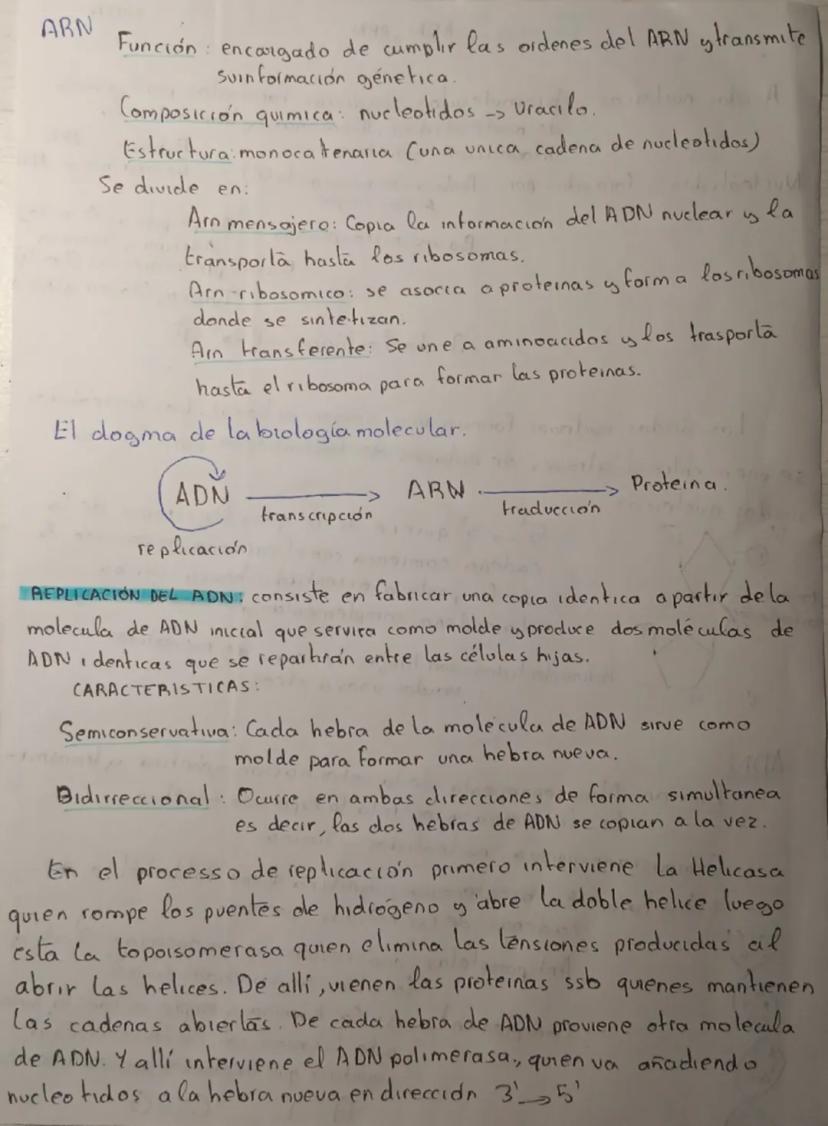 ARN
Función: encargado de cumplir las ordenes del ARN y transmite
su información génetica.
Composición quimica: nucleotidos -> Uracilo.
Estructura: monocatenaria (una unica cadena de nucleotidos)
Se divide en:
Arn mensajero: Copia la información del ADN nuclear y la
transporta hasta los ribosomas.
Arn-ribosomico: se asocia a proteinas y forma los ribosomas
donde se sintetizan.
Arn transferente: Se une a aminoacidos y los trasporta
hasta el ribosoma para formar las proteinas.
El dogma de la biología molecular.
ADN → ARN → Proteina.
transcripción traducción
replicación
REPLICACIÓN DEL ADN: consiste en fabricar una copia identica a partir de la
molecula de ADN inicial que servira como molde y produce dos moléculas de
ADN identicas que se repartirán entre las células hijas.
CARACTERISTICAS:
Semiconservativa: Cada hebra de la molécula de ADN sirve como
molde para formar una hebra nueva.
Bidirreccional: Ocurre en ambas direcciones de forma simultanea
es decir, las dos hebras de ADN se copian a la vez.
En el processo de replicación primero interviene la Helicasa
quien rompe los puentes de hidrógeno y abre la doble helice luego
esta la topoisomerasa quien elimina las tensiones producidas al
abrir las helices. De allí, vienen las proteinas ssb quienes mantienen
las cadenas abiertas. De cada hebra de ADN proviene otra molecula
de ADN. Y allí interviene el ADN polimerasa, quien va añadiendo
nucleotidos a la hebra nueva en dirección 3'→5'